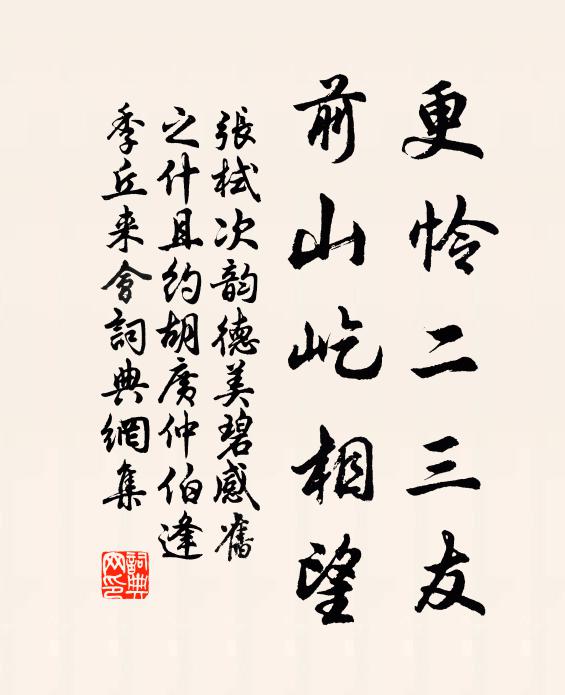 更怜二三友
前山屹相望
張栻次韵德美碧感舊
之什且約胡廣仲伯逢
季丘来會詞典網集
詞典网印